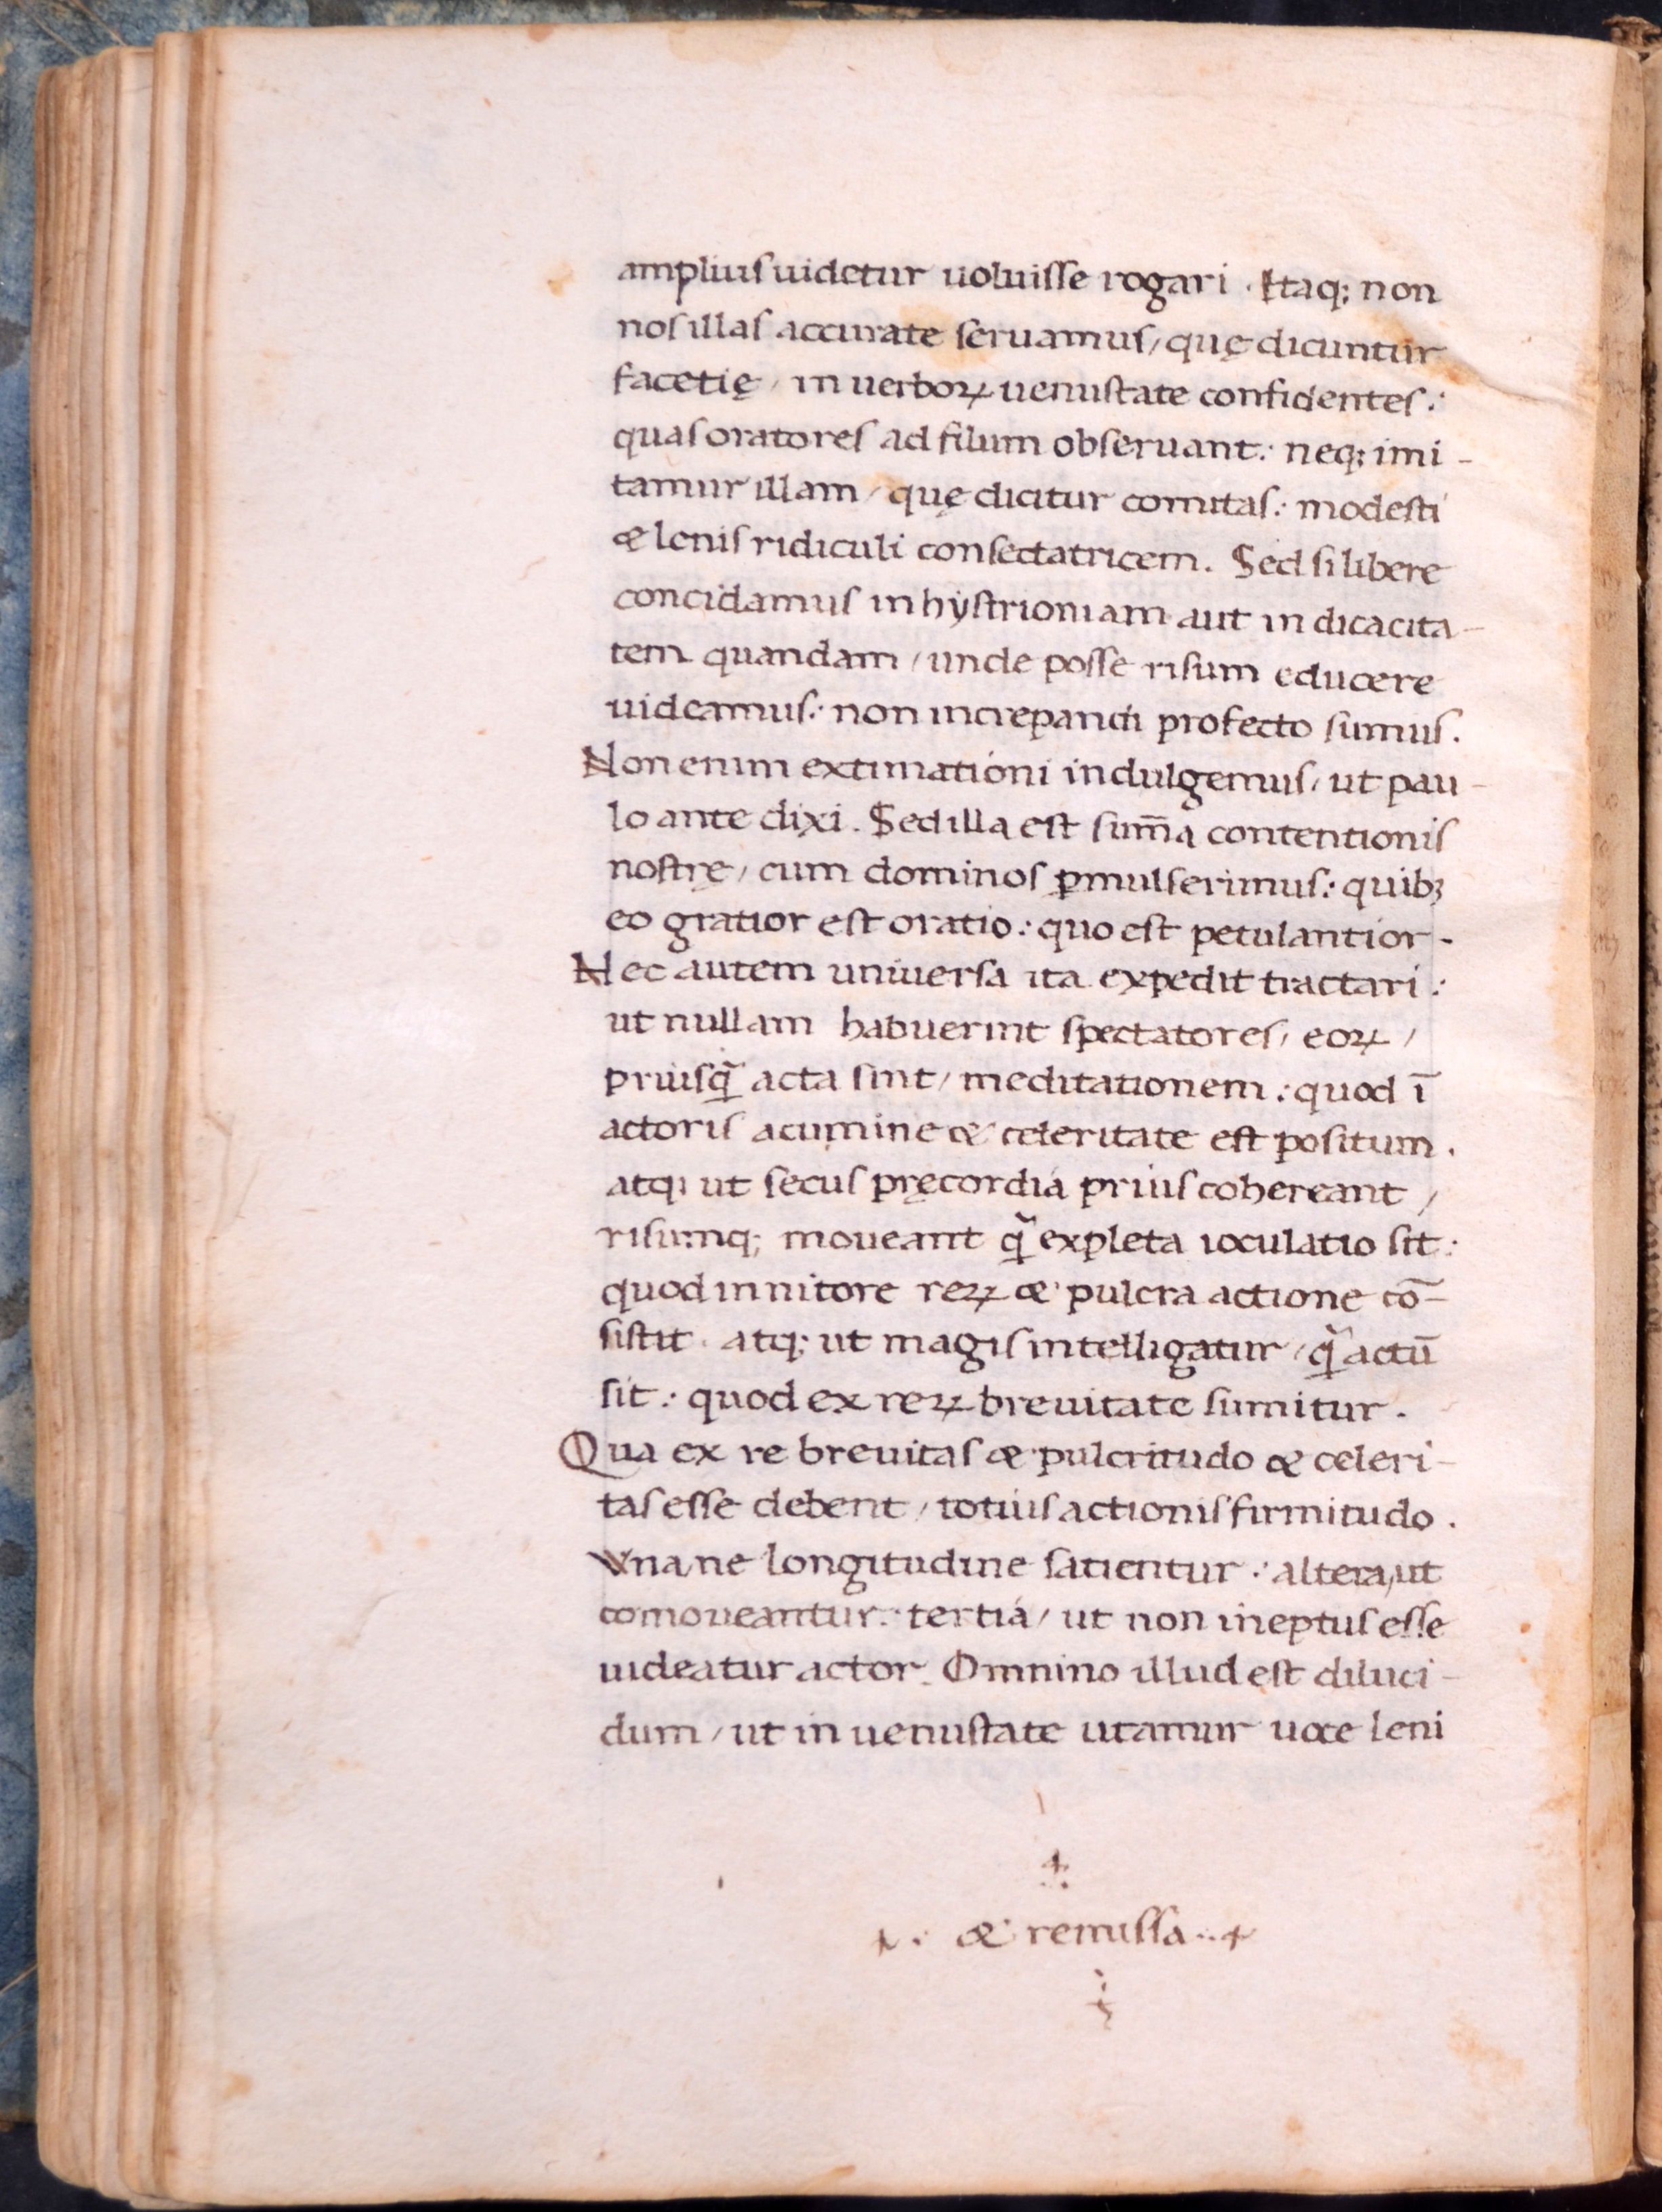 ampliuſ uidetur uoluiſſe rogari . Itaq; non
noſ illaſ accurate ſeruamuſ / quę dicuntur
facetię / in uerboꝝ uenuſtate confidenteſ :
quaſ oratoreſ ad filum obſeruant : neq; imi-
tamur illam / quę dicitur comitaſ : modeſti
& leniſ ridiculi conſectatricem . Sed ſi libere
concidamuſ in hyſtrioniam aut in dicacita-
tem quandam / unde poſſe riſum educere
uideamuſ : non increpandi profecto ſumuſ .
Non enim extimationi indulgemuſ / ut pau-
lo ante dixi . Sed illa eſt sum̄a contentioniſ
noſtrę / cum dominoſ ꝑmulſerimuſ : quibꝫ
eo gratior eſt oratio : quo eſt petulantior .
Nec autem uniuerſa ita expedit tractari :
ut nullam habuerint ſpectatoreſ / eoꝝ /
priuſq̃ acta ſint / meditationem : quod ī
actoriſ acumine & celeritate eſt poſitum .
atq; ut ſecuſ pręcordia priuſ cohereant /
riſumq; moueant q̃ expleta ioculatio ſit :
quod in nitore reꝝ & pulcra actione cō-
ſiſtit . atq; ut magiſ intelligatur / q̃ actū
ſit : quod ex reꝝ breuitate ſumitur .
Qua ex re breuitaſ & pulcritudo & celeri-
taſ eſſe debent / totiuſ actioniſ firmitudo .
Vna / ne longitudine ſatientur : altera / ut
comoueantur : tertia / ut non ineptuſ eſſe
uideatur actor . Omnino illud eſt diluci-
dum / ut in uenuſtate utamur uoce leni
& remiſſa